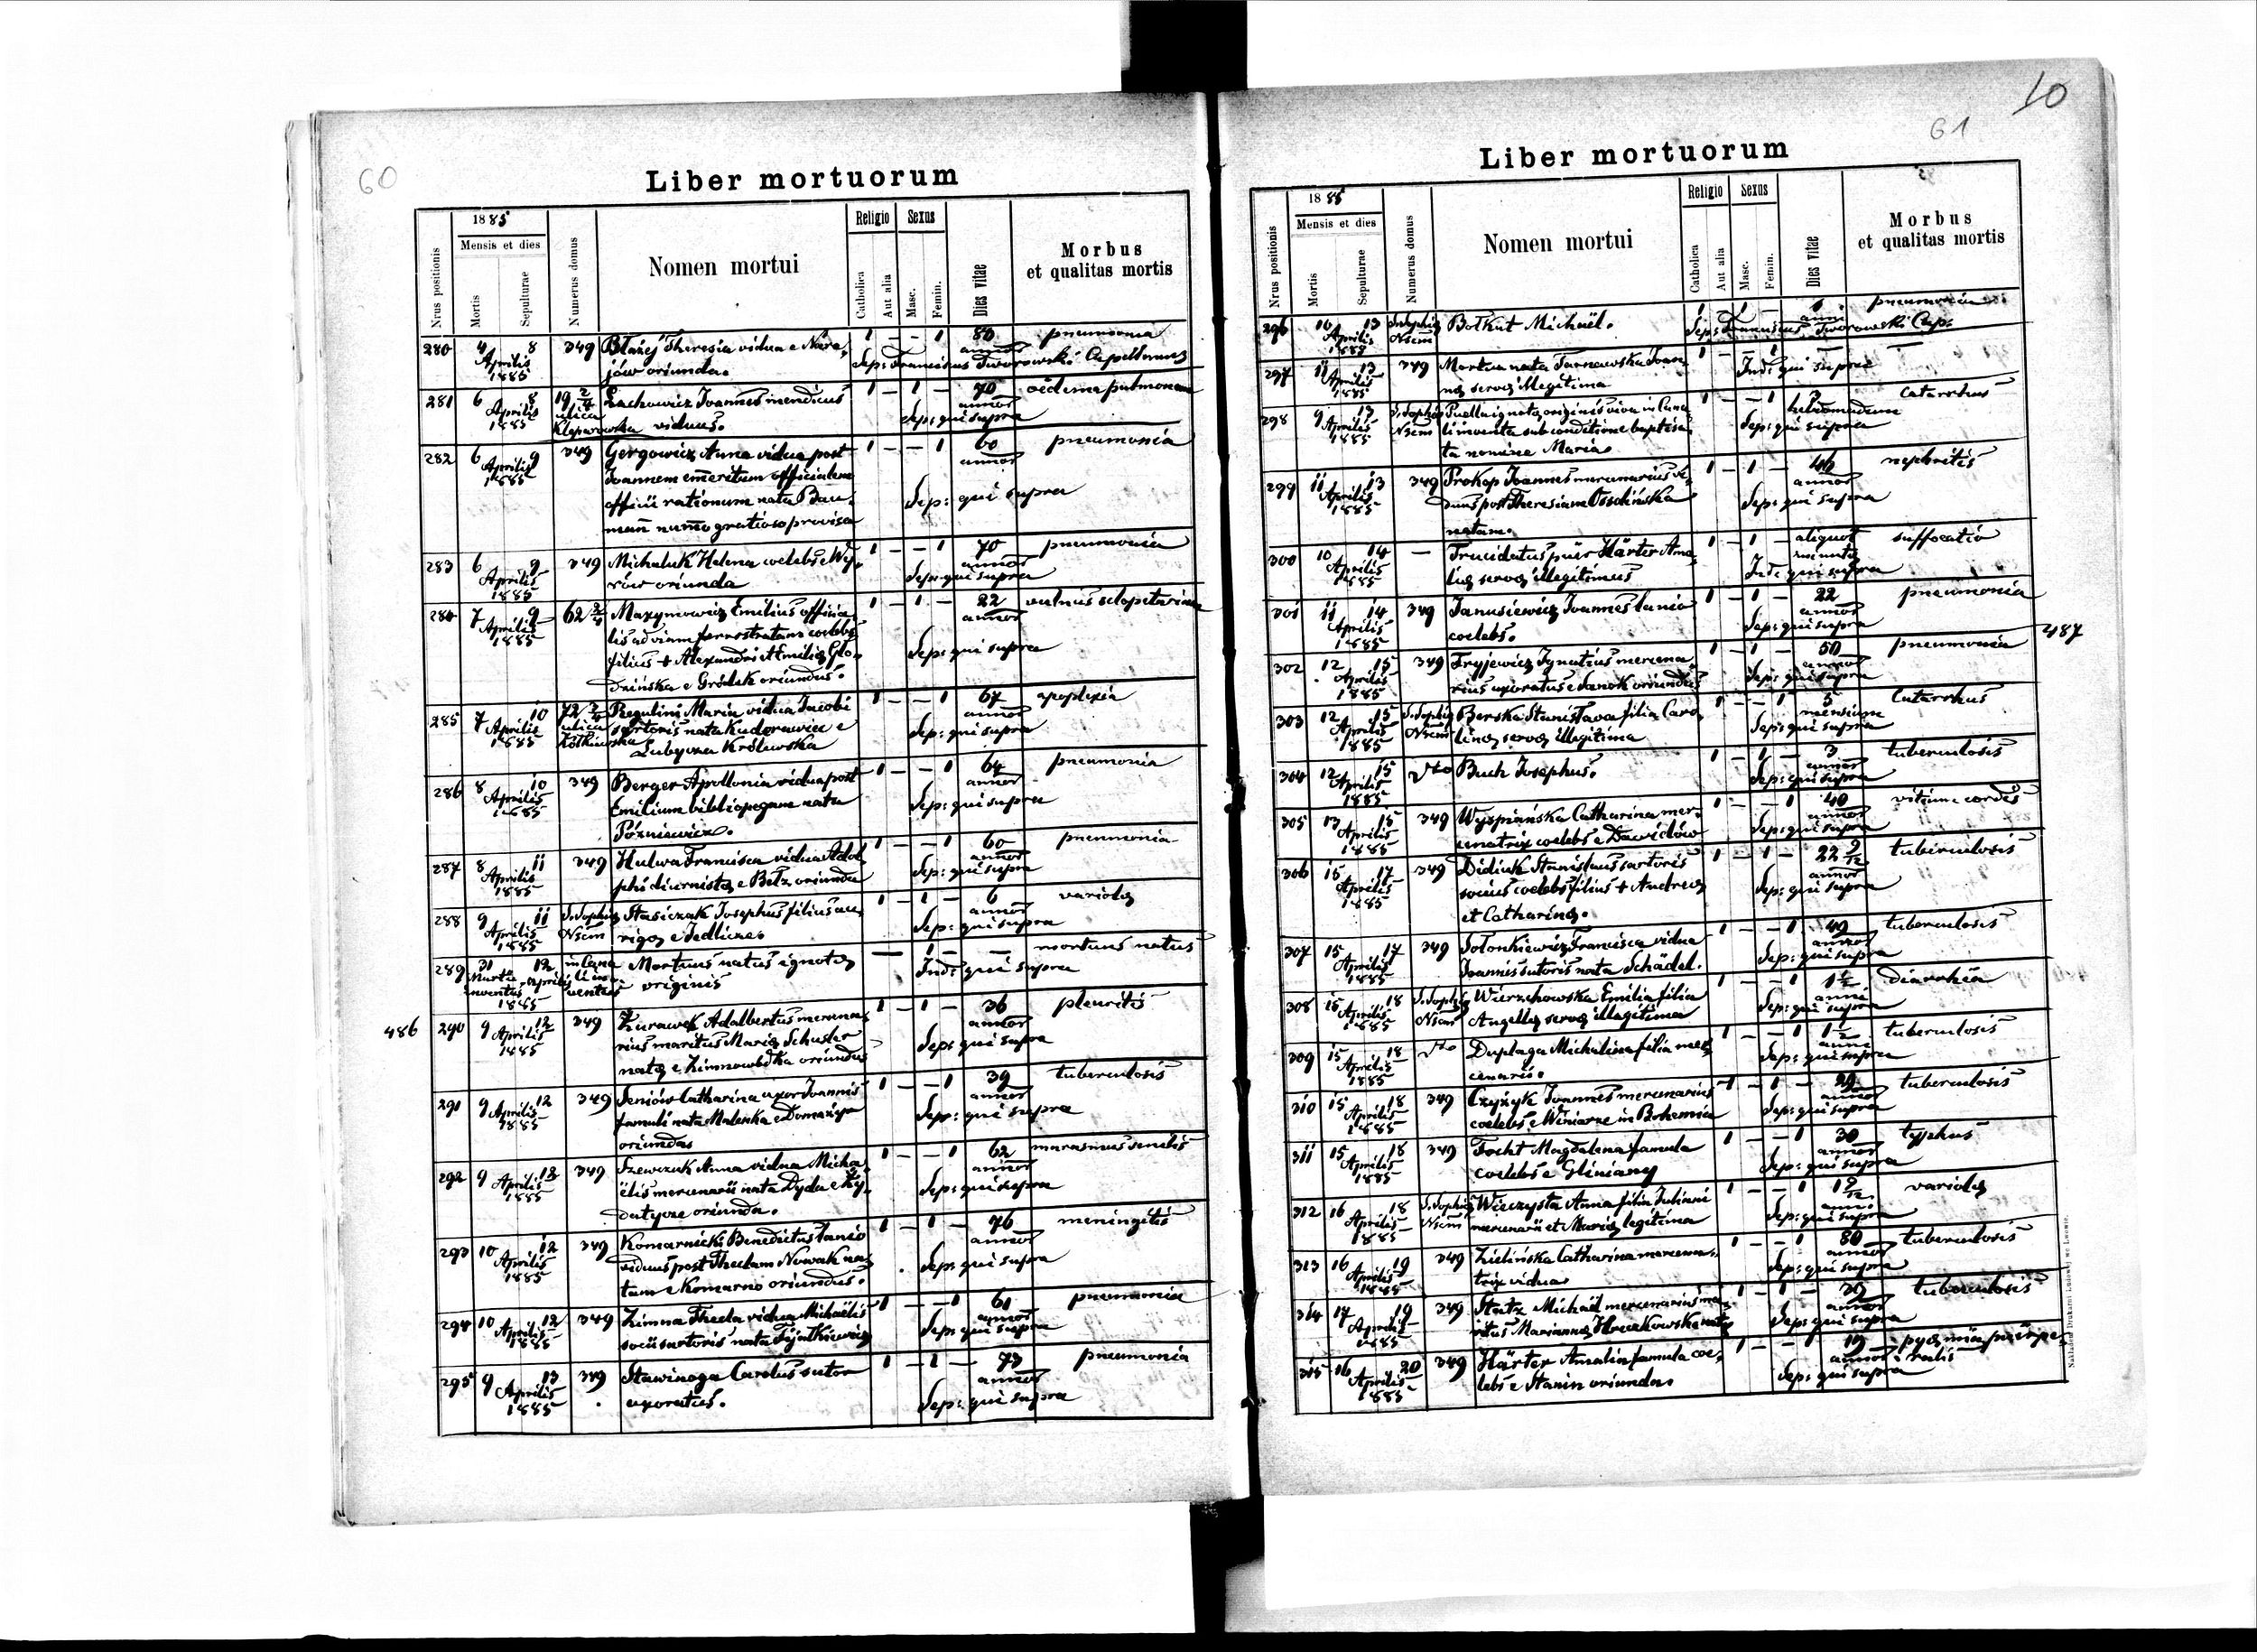 60
Liber mortuorum
Nrus positionis
1885
Mensis et dies
Mortis
Sepulturae
Numerus domus
Nomen mortui
Religio
Catholica
Aut alia
Sexus
Masc.
Femin.
Dies vitae
Morbus
et qualitas mortis
280 4 8 349 Błażej Theresia vidua e Nara- 1 — — 1 80 pneumonia
Aprilis 1885 jów oriunda. annor Sep: Franciscus Tworowski Capellanus
281 6 8 19 2/4 Lachowicz Joannes mendicus 1 — 1 — 70 oedema pulmonum
Aprilis 1885 ulica Kleparowska viduus. annor Sep: qui supra
282 6 9 349 Gergowicz Anna vidua post 1 — — 1 60 pneumonia
Aprilis 1885 Joannem emeritum officialem annor
officii rationum nata Bau- Sep: qui supra
mann numo gratioso provisa
283 6 9 349 Michaluk Helena coelebs e Wy- 1 — — 1 70 pneumonia
Aprilis 1885 rów oriunda annor Sep: qui supra
284 7 9 62 2/4 Maxymowicz Emilius officia- 1 — 1 — 22 vulnus sclopetarium
Aprilis 1885 lis ad viam ferrostratam coelebs annor
filius + Alexandri et Emiliae Glo- Sep: qui supra
dzińska e Gródek oriundus.
285 7 10 72 2/4 Regulini Maria vidua Jacobi 1 — — 1 67 apoplexia
Aprilis 1885 ulica Żółkiewska sartoris nata Kudorowicz e annor Sep: qui supra
Lubycza Królewska
286 8 10 349 Berger Apollonia vidua post 1 — — 1 64 pneumonia
Aprilis 1885 Emilium bibliopegam nata annor Sep: qui supra
Późniewicz.
287 8 11 349 Hulwa Francisca vidua Adol- 1 — — 1 60 pneumonia
Aprilis 1885 phi diurnistae e Bełz oriunda annor Sep: qui supra
288 9 11 S. Sophiae Stasiczak Josephus filius au- 1 — 1 — 6 variolae
Aprilis 1885 Nscm rigae e Jedlicze annor Sep: qui supra
289 31 12 in canali in- Mortuus natus ignotae — 1 — mortuus natus
Martii inventus Aprilis 1885 ventus originis Ind: qui supra
486 290 9 12 349 Żurawek Adalbertus mercena- 1 — 1 — 36 pleuritis
Aprilis 1885 rius maritus Mariae Schuster annor Sep: qui supra
natae e Zimnawodka oriundus
291 9 12 349 Seniów Catharina uxor Joannis 1 — — 1 39 tuberculosis
Aprilis 1885 famuli nata Malenka e Domażyr annor Sep: qui supra
oriunda
292 9 12 349 Szewczuk Anna vidua Micha- 1 — — 1 62 marasmus senilis
Aprilis 1885 ëlis mercenarii nata Dyda e Ży- annor Sep: qui supra
datycze oriunda.
293 10 12 349 Komarnicki Benedictus lanio 1 — 1 — 76 meningitis
Aprilis 1885 viduus post Theclam Nowak na- annor Sep: qui supra
tam e Komarno oriundus.
294 10 12 349 Zimna Thecla vidua Michaëlis 1 — — 1 61 pneumonia
Aprilis 1885 socii sartoris nata annor Sep: qui supra
295 9 13 349 Stawinoga Carolus sutor 1 — 1 — 73 pneumonia
Aprilis 1885 uxoratus. annor Sep: qui supra
10
61
Liber mortuorum
Nrus positionis
1885
Mensis et dies
Mortis
Sepulturae
Numerus domus
Nomen mortui
Religio
Catholica
Aut alia
Sexus
Masc.
Femin.
Dies vitae
Morbus
et qualitas mortis
296 10 13 S. Sophiae Botkut Michaël. 1 — 1 — pneumonia
Aprilis 1885 Nscm anni Sep: Franciscus Tworowski Cap.
297 11 13 349 Mortua nata Tarnawska Joan- 1 — — 1 —
Aprilis 1885 nae servae illegitima Ind: qui supra
298 9 13 S. Sophiae Puella ignotae originis viva in cana- 1 — — 1 catarrhus
Aprilis 1885 Nscm li inventa sub conditione baptisa- hebdomadum Sep: qui supra
ta nomine Maria
299 11 13 349 Prokop Joannes mercenarius vi- 1 — 1 — 46 nephritis
Aprilis 1885 duus post Theresiam Ossolińska annor Sep: qui supra
natam.
300 10 14 — Trucidatus puer Härter Ama- 1 — 1 — aliquot suffocatio
Aprilis 1885 liae servae illegitimus minuta Ind: qui supra
301 11 14 349 Janusiewicz Joannes lanio 1 — 1 — 22 pneumonia
Aprilis 1885 coelebs. annor Sep: qui supra
302 12 15 349 Fryjewicz Ignatius mercena- 1 — 1 — 50 pneumonia 487
Aprilis 1885 rius uxoratus e Sanok oriundus annor Sep: qui supra
303 12 15 S. Sophiae Berska Stanisława filia Caro- 1 — — 1 5 Catarrhus
Aprilis 1885 Nscm linae servae illegitima mensium Sep: qui supra
304 12 15 dto Buch Josephus. 1 — 1 — 3 tuberculosis
Aprilis 1885 annor Sep: qui supra
305 13 15 349 Wyspiańska Catharina mer- 1 — — 1 40 vitium cordis
Aprilis 1885 cenatrix coelebs e Dawidów annor Sep: qui supra
306 15 17 349 Didiuk Stanislaus sartoris 1 — 1 — 22 9/12 tuberculosis
Aprilis 1885 socius coelebs filius + Andreae annor Sep: qui supra
et Catharinae.
307 15 17 349 Sołonkiewicz Francisca vidua 1 — — 1 49 tuberculosis
Aprilis 1885 Joannis sutoris nata Schädel. annor Sep: qui supra
308 15 18 S. Sophiae Wierzchowska Emilia filia 1 — — 1 1 1/2 Diarrhëa
Aprilis 1885 Nscm Angellae servae illegitima anni Sep: qui supra
309 15 18 dto Duplaga Michalina filia mer- 1 — — 1 1 1/2 tuberculosis
Aprilis 1885 cenarii. anni Sep: qui supra
310 15 18 349 Czyżyk Joannes mercenarius 1 — 1 — 29 tuberculosis
Aprilis 1885 coelebs e Winiarze in Bohemia annor Sep: qui supra
311 15 18 349 Focht Magdalena famula 1 — — 1 30 typhus
Aprilis 1885 coelebs e Gliniany annor Sep: qui supra
312 16 18 S. Sophiae Wieczysta Anna filia Juliani 1 — — 1 1 9/12 variolae
Aprilis 1885 Nscm mercenarii et Mariae legitima anni Sep: qui supra
313 16 19 349 Zielińska Catharina mercena- 1 — — 1 80 tuberculosis
Aprilis 1885 trix vidua annor Sep: qui supra
314 17 19 349 Statz Michaël mercenarius ma- 1 — 1 — 39 tuberculosis
Aprilis 1885 ritus Mariannae natae annor Sep: qui supra
315 16 20 349 Härter Amalia famula coe- 1 — — 1 19 pyaemia puerpe-
Aprilis 1885 lebs e Stanin oriunda. annor ralis Sep: qui supra
Nakładem Drukarni Ludowej we Lwowie.